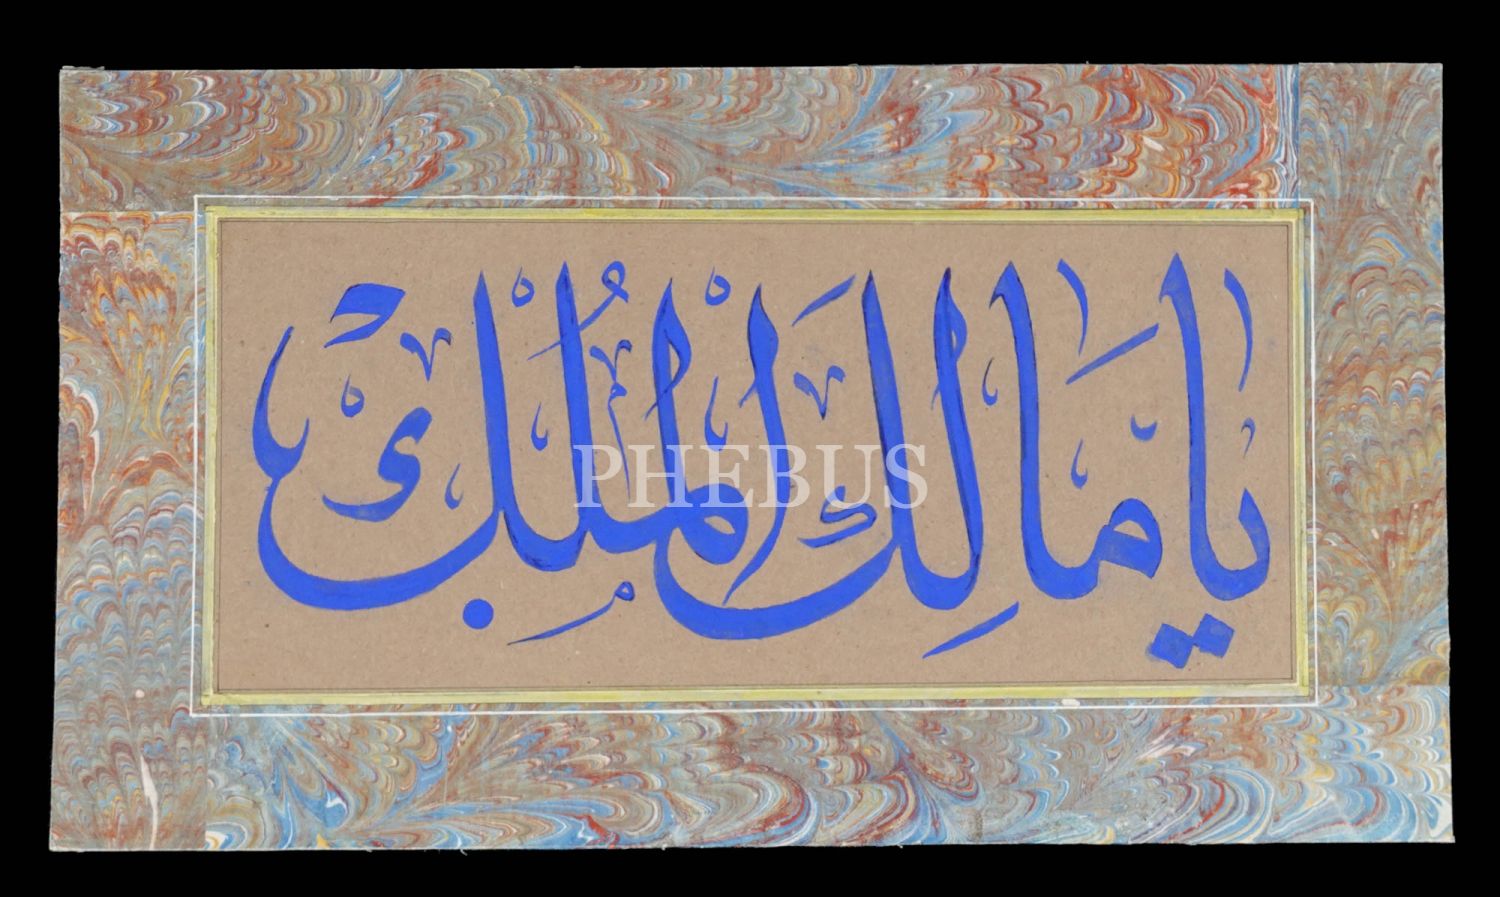 يا مَالِكَ الْمُلْكِ
PHEBUS